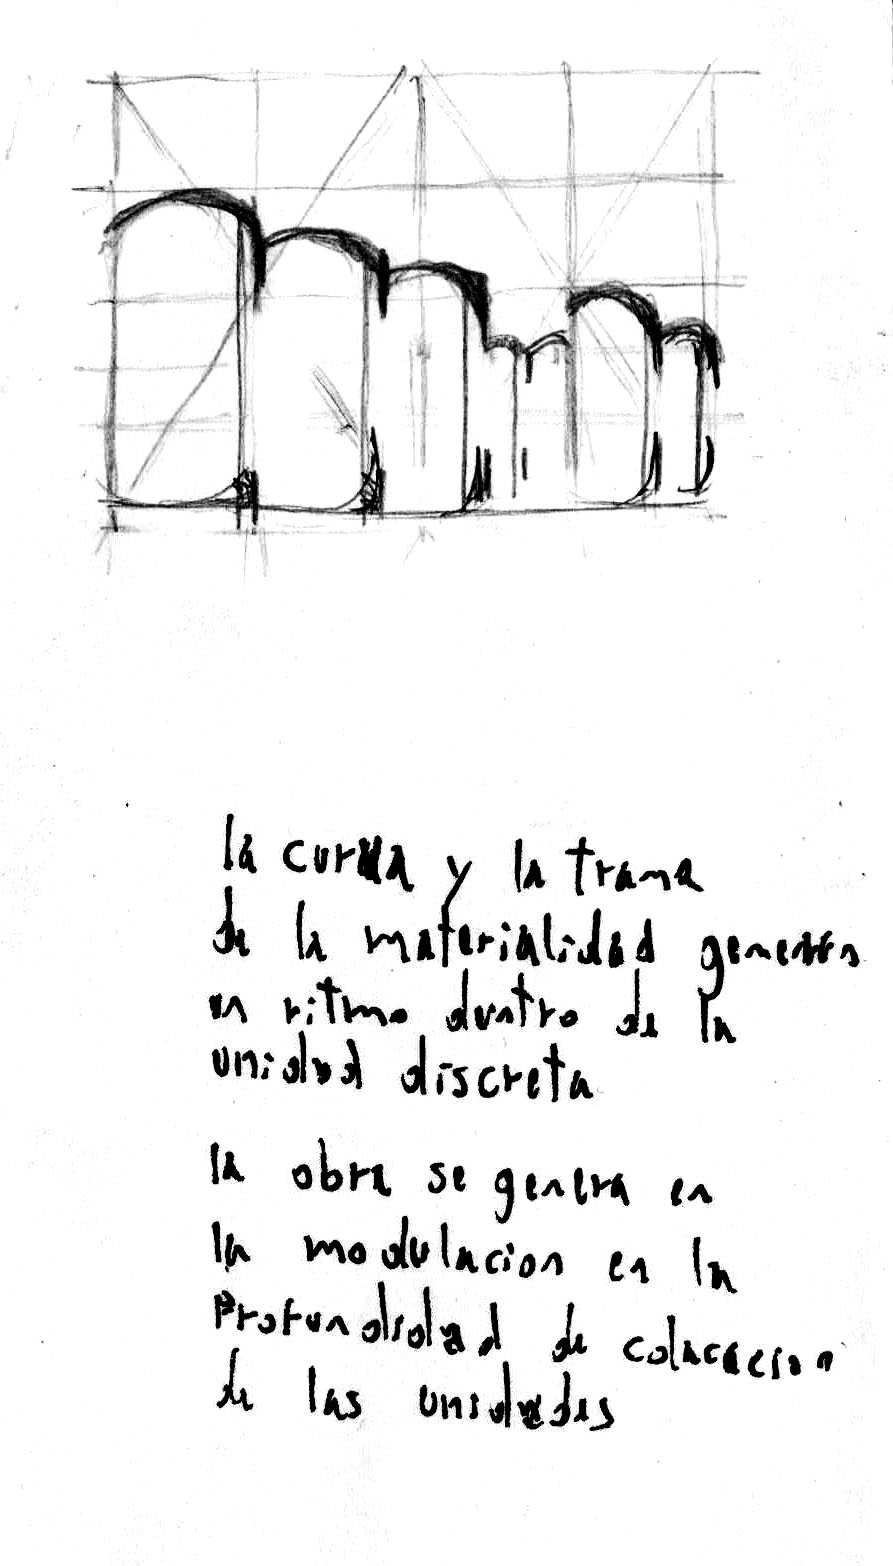 la curva y la trama
de la materialidad generan
un ritmo dentro de la
unidad discreta
la obra se genera en
la modulacion en la
Profundidad de colocacion
de las unidades